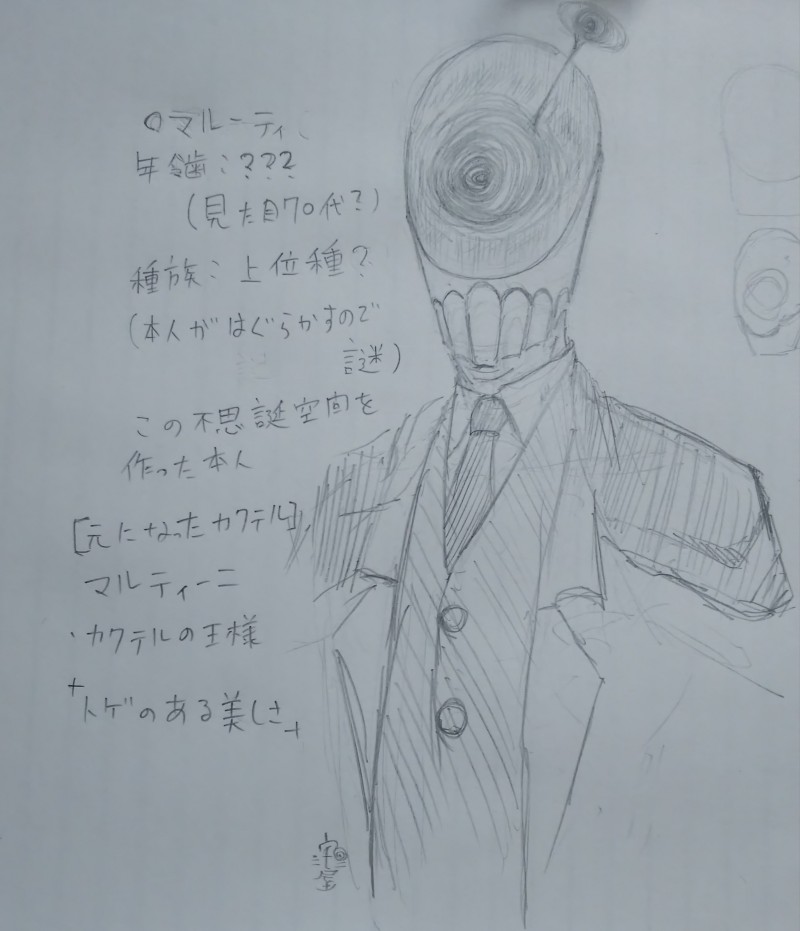 ○マルーティ
年齢:???
(見た目70代?)
種族:上位種?
(本人がはぐらかすので
謎)
この不思誕空間を
作った本人
[元になったカクテル]
マルティーニ
・カクテルの王様
"トゲのある美しさ"